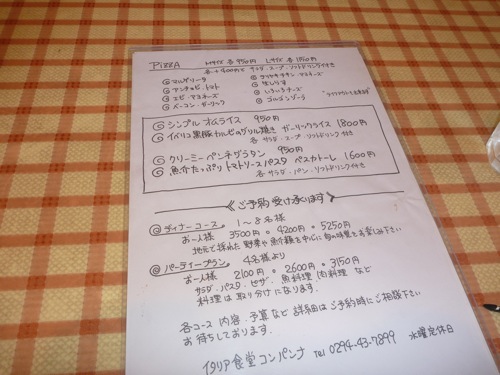 PIZZA Mサイズ 各 950円 Lサイズ 各 1850円
各+400円で サラダ・スープ・ソフトドリンク付き
マルゲリータ
アンチョビ・トマト
エビ・マヨネーズ
ベーコン・ガーリック
テリヤキチキン・マヨネーズ
生しらす
いろいろチーズ
ゴルゴンゾーラ
シンプル オムライス 950円
イベリコ黒豚カルビのグリル焼き ガーリックライス 1800円
各 サラダ・スープ・ソフトドリンク付き
クリーミー ペンネグラタン 950円
魚介たっぷり トマトソースパスタ ペスカトーレ 1600円
各 サラダ・パン・ソフトドリンク付き
ご予約 受け承ります
ディナーコース 1〜8名様
お一人様 3500円 4200円 5250円
地元で採れた 野菜や魚介類を中心に 旬の味覚をお楽しみ下さい
パーティープラン 4名様より
お一人様 2100円 2600円 3150円
サラダ・パスタ・ピザ・魚料理・肉料理 など
料理は 取り分けになります。
各コース 内容・予算など 詳細は ご予約時にご相談下さい
お待ちしております。
イタリア食堂 コンパンナ Tel 0294-43-7899 水曜定休日